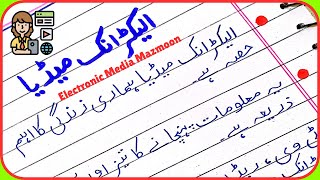 الیکٹرانک میڈیا
Electronic Media Mazmoon
الیکٹرانک میڈیا ہماری زندگی کا اہم
حصہ ہے۔
یہ معلومات پہنچانے کا تیز اور
ذریعہ ہے۔
ٹی وی، ریڈیو